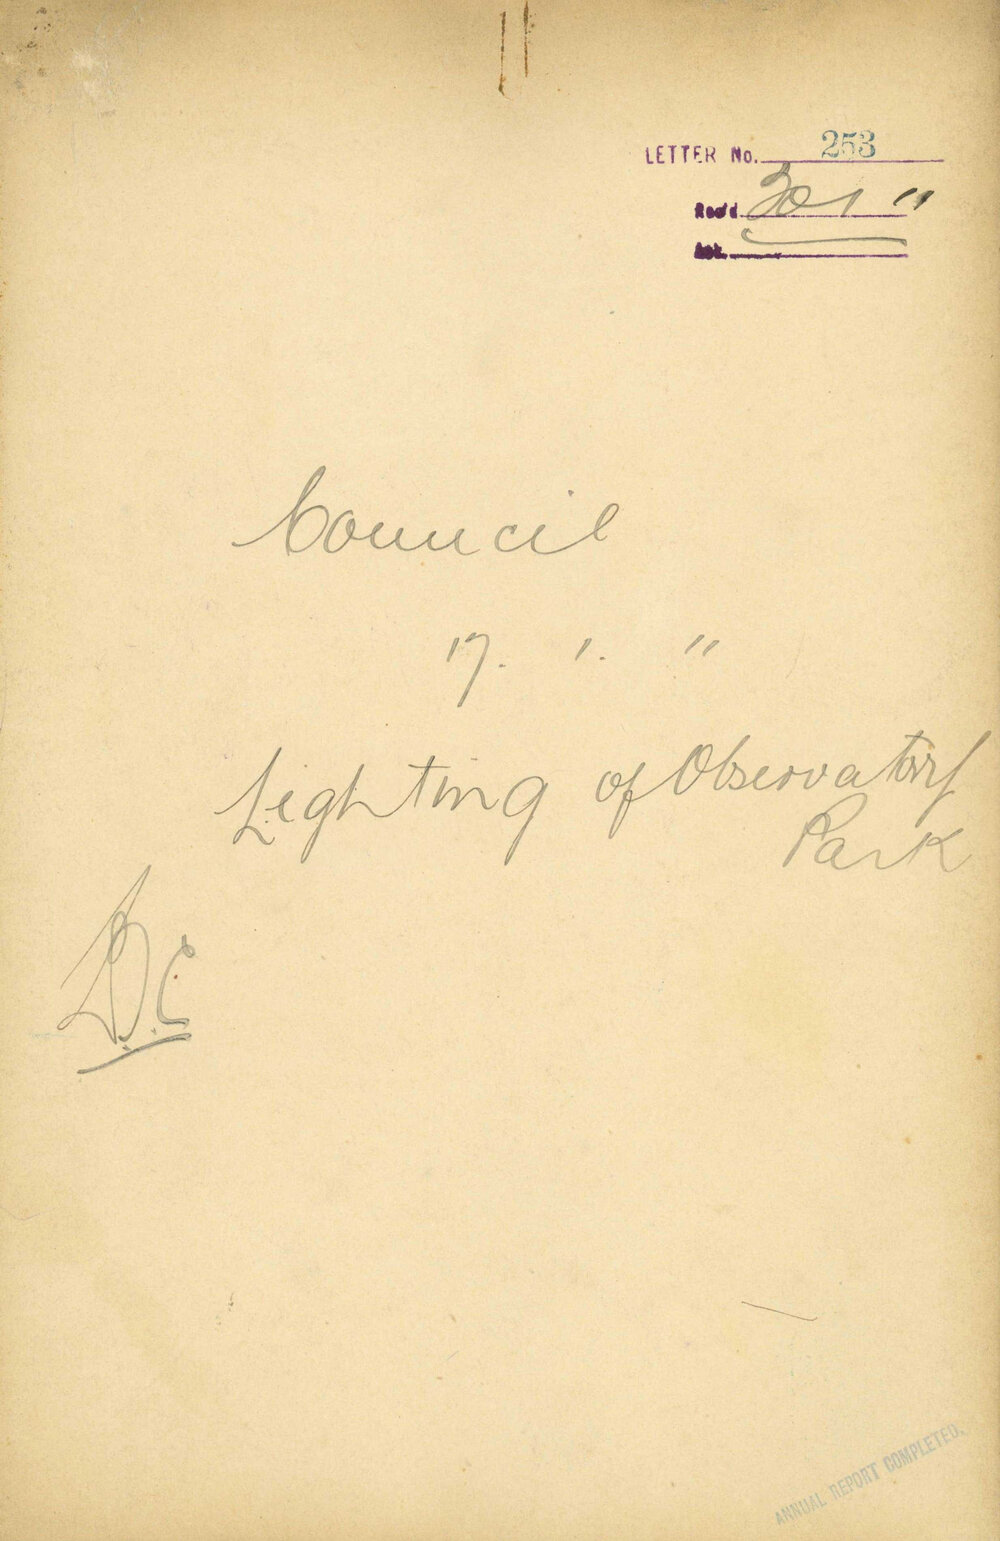 LETTER No. 253
Rec'd 30 1 11
Ack.
Council
17. 1. 11
Lighting of Observatory
Park
D.C
ANNUAL REPORT COMPLETED.